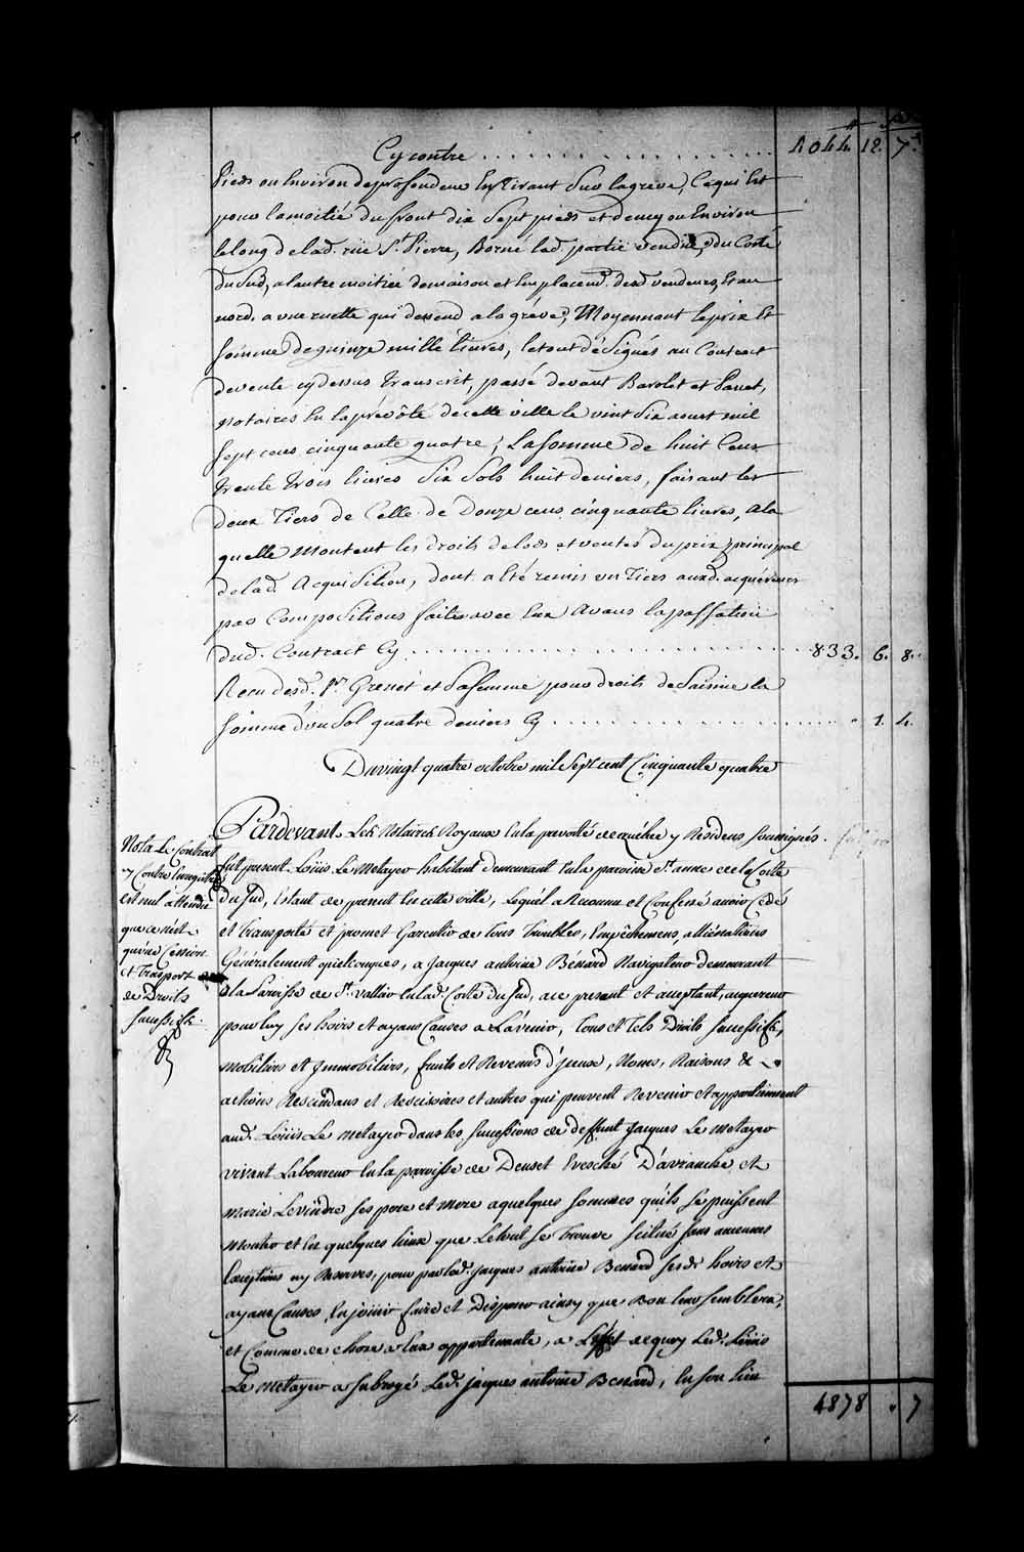 Cy contre . . . . . . . . . . . . . . . 4044 12. 7.
Pieds ou Environ de profondeur En tirant Sur la greve, Ce qui Est
pour la moitié du front dix Sept pieds et demy ou Environ
le long de lad. rüe St. Pierre, Borné lad. partie vendüe, du Costé
du Sud, a l'autre moitiée de maison et Emplacemt. desd. vendeurs, Et au
nord. a une ruelle qui dessend a la gréve; Moyennant le prix Et
somme de quinze mille livres, le tout désigné au Contract
de vente cy dessus transcrit, passé devant Barolet et Panet,
notaires En la prévôté de cette ville le vint Six aoust mil
sept cens cinquante quatre; La somme de huit Cens
trente trois livres Six Sols huit deniers, faisant les
deux Tiers de Celle de Douze cens cinquante livres, a la
quelle Montent les droits de lods et ventes du prix principal
de lad. Acquisition, dont a Eté remis un Tiers auxd. acquéreurs
par Compositions faites avec Eux Avant la passation
dud. Contract Cy . . . . . . . . . . . . . . . 833. 6. 8.
Recu desd. Sr. Grenet et Sa femme pour droits de Saisine la
somme d'un Sol quatre deniers Cy . . . . . . . . . . . " 1. 4.
Du vingt quatre octobre mil Sept cent Cinquante quatre
Pardevant Les Notaires Royaux En la prevosté de quebec y Residens soussignés.
fut present Loüis Le Metayer habitant demeurant En la paroisse Ste. anne de la Coste
du Sud, Estant de present En cette ville, Lequel a Reconnu et Confessé avoir Cedé
et transporté et promet Garentir de tous troubles, Empêchemens, alliénations
Généralement quelconques, a Jacques antoine Bénard Navigateur demeurant
a la Paroisse de St. vallier En lad. Coste du Sud, a ce present et acceptant, acquereur
pour luy ses hoirs et ayans Causes a L'avenir, Tous et Tels Droits successifs,
mobiliers et Immobiliers, fruits et Revenus d'yceux, Noms, Raisons &
actions Rescindans et Rescisoires et autres qui peuvent Revenir et appartiennent
aud. Loüis Le Metayer dans les successions de deffunt Jacques Le Metayer
vivant Laboureur En la paroisse de Evesché D'avranche, et
Marie Levindre ses pere et mere a quelques sommes qu'ils se puissent
Monter et En quelques lieux que Le tout se trouve scitué sans aucunnes
Exceptions ny Reserves, pour par led. Jacques antoine Benard sesd. hoirs et
ayans Causes En joüir faire et Disposer ainsy que Bon leur semblera,
et Comme de chose a Eux appartenante, a L'effet de quoy Led. Loüis
Le Metayer a subrogé Led. jacques antoine Benard, En son lieu
4878 . 7
Nota Le Contract
cy Contre Enregistré
est nul attendu
que ce n'est
qu'une Cession
et Transport
de Droits
successifs.